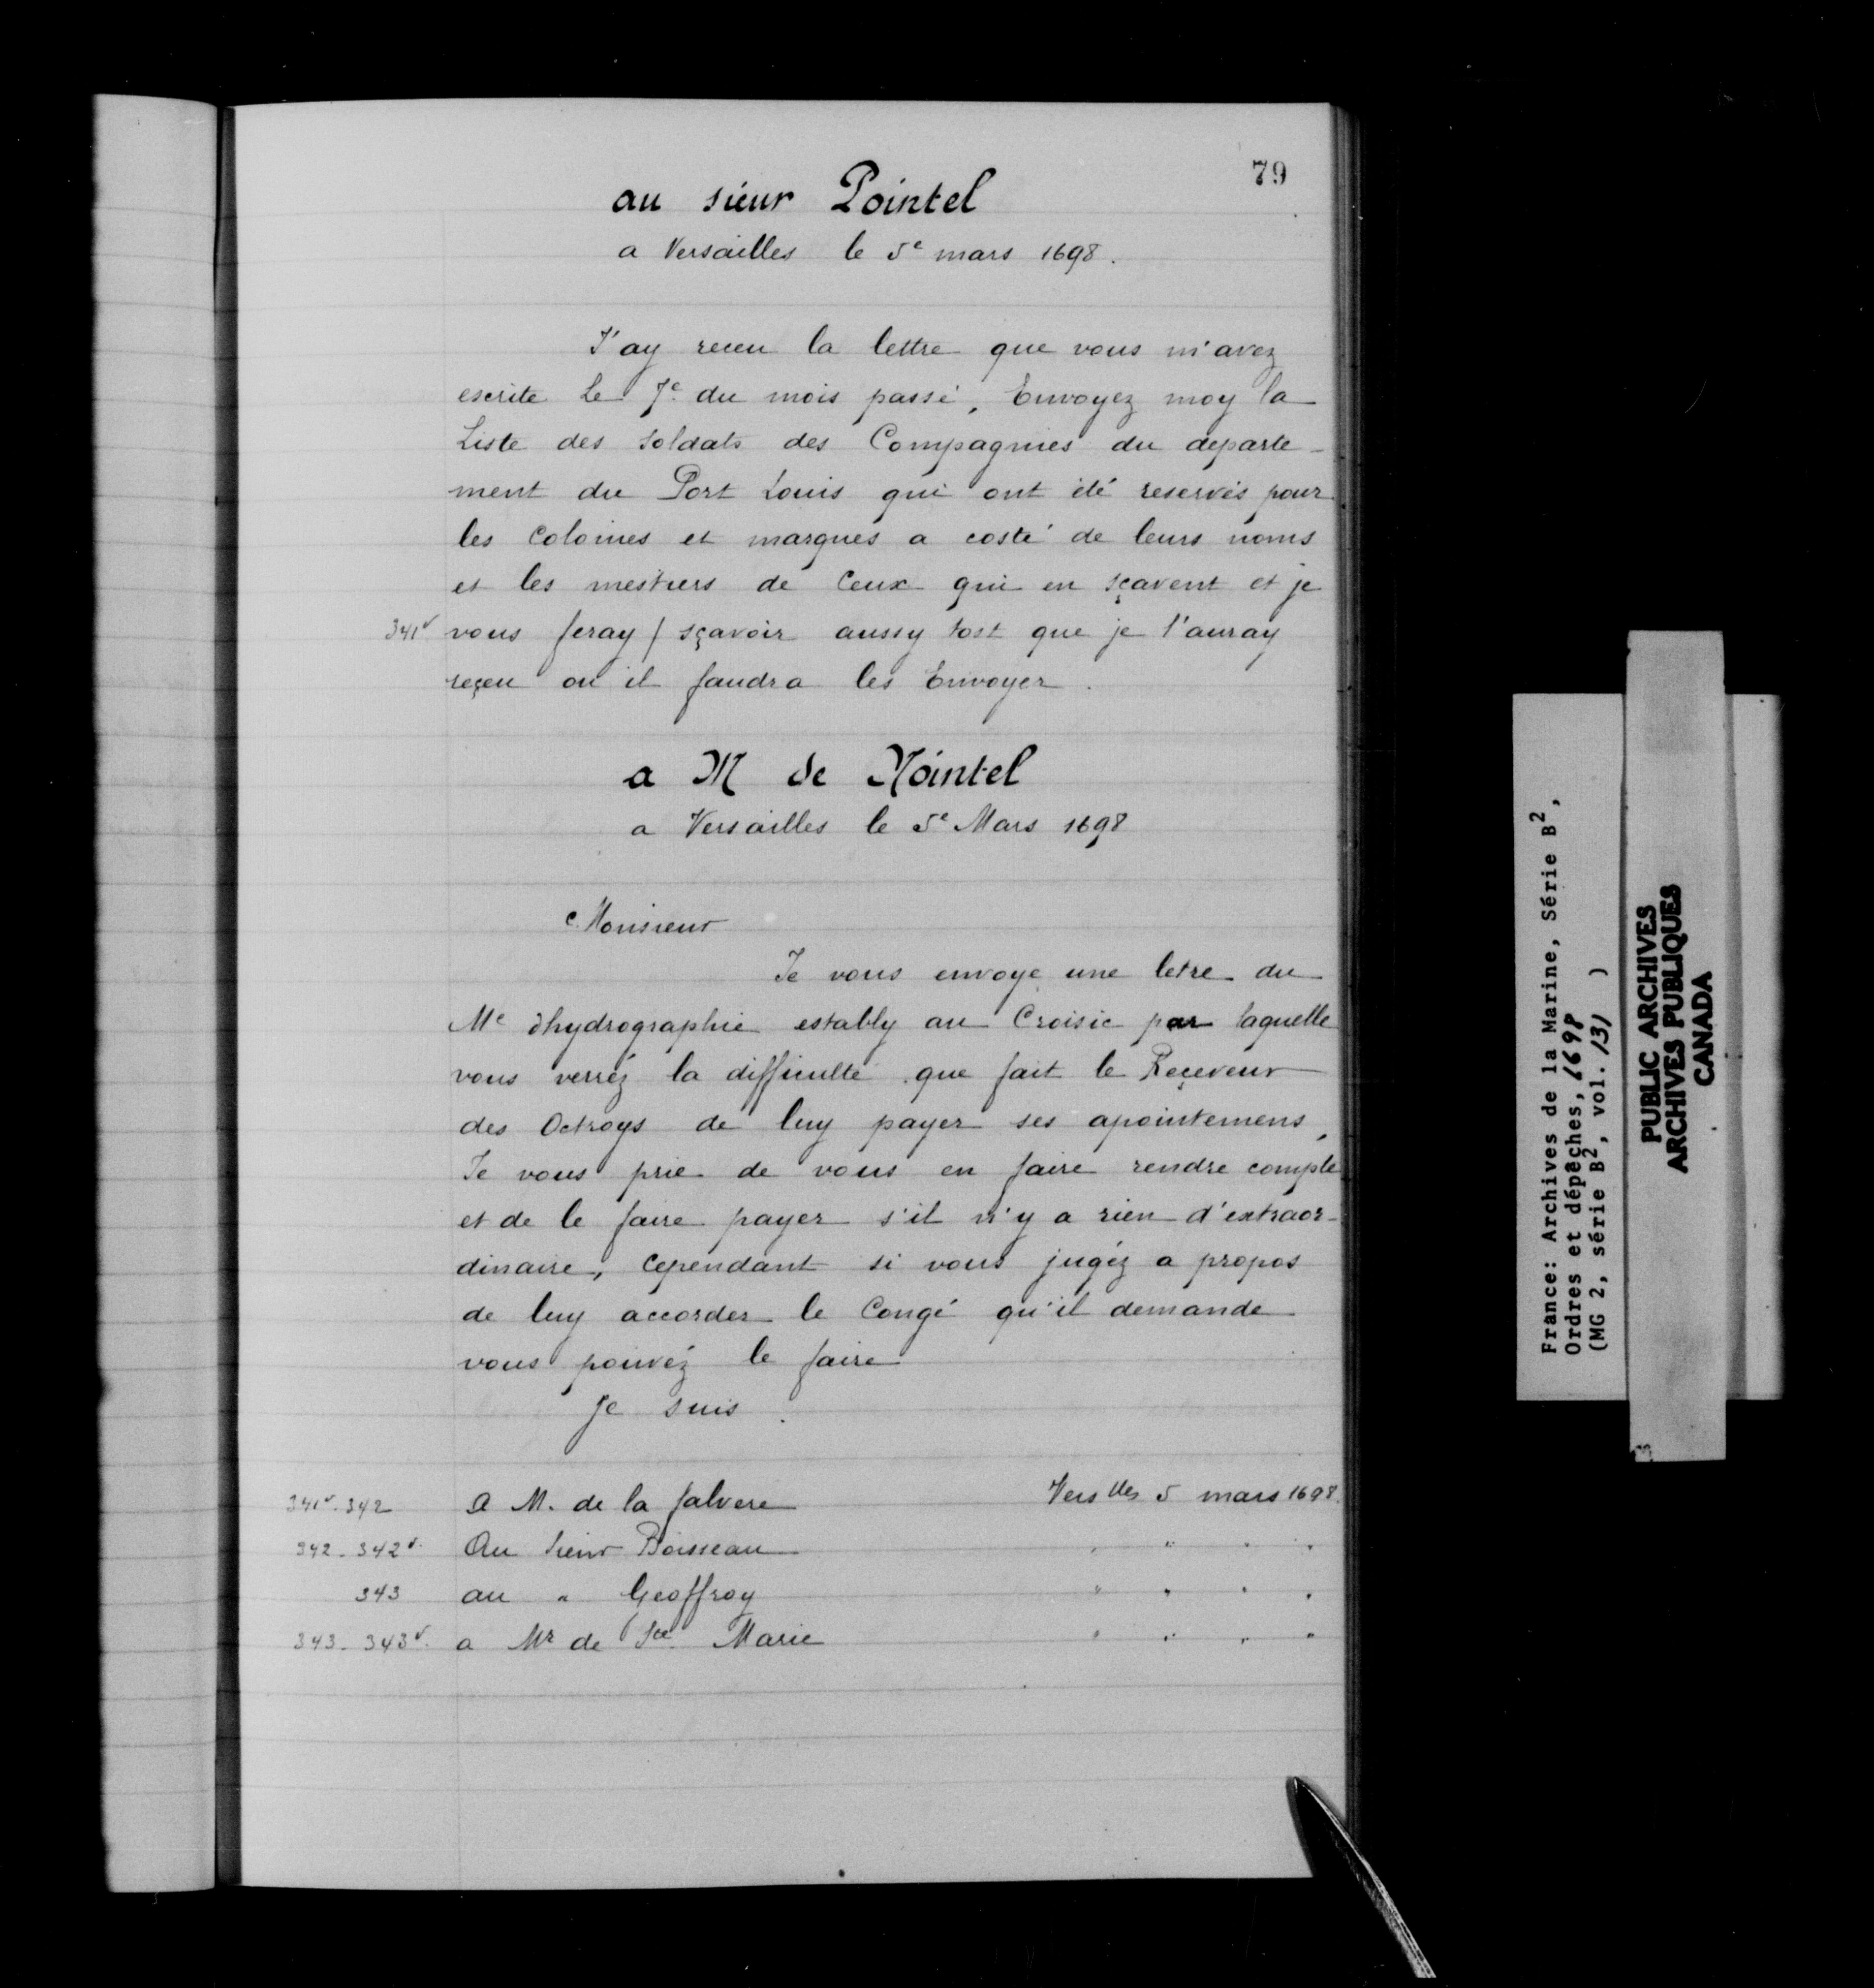 79
au sieur Pointel
a Versailles le 5e mars 1698.
J'ay receu la lettre que vous m'avez
escrite Le 7e du mois passé, Envoyez moy la
Liste des soldats des Compagnies du departe-
ment du Port Louis qui ont été reservés pour
les Colonies et marqués a costé de leurs noms
et les mestiers de Ceux qui en sçavent et je
341v vous feray / sçavoir aussy tost que je l'auray
reçeu ou il faudra les Envoyer.
a M de Nointel
a Versailles le 5e Mars 1698
Monsieur
Je vous envoye une letre du
Me d'hydrographie estably au Croisic par laquelle
vous verréz la difficulté que fait le Reçeveur
des Octroys de luy payer ses apointemens,
Je vous prie de vous en faire rendre compte
et de le faire payer s'il n'y a rien d'extraor-
dinaire, Cependant si vous jugéz a propos
de luy accorder le Congé qu'il demande
vous pouvéz le faire
Je suis.
341v-342 A M. de la Jalvere Verslles 5 mars 1698.
342-342v. Au Sieur Boisseau " " " "
343 au " Geoffroy " " " "
343-343v. a Mr de Ste Marie " " " "
France: Archives de la Marine, Série B2,
Ordres et dépêches, 1698
(MG 2, série B2, vol. 131 )
PUBLIC ARCHIVES
ARCHIVES PUBLIQUES
CANADA